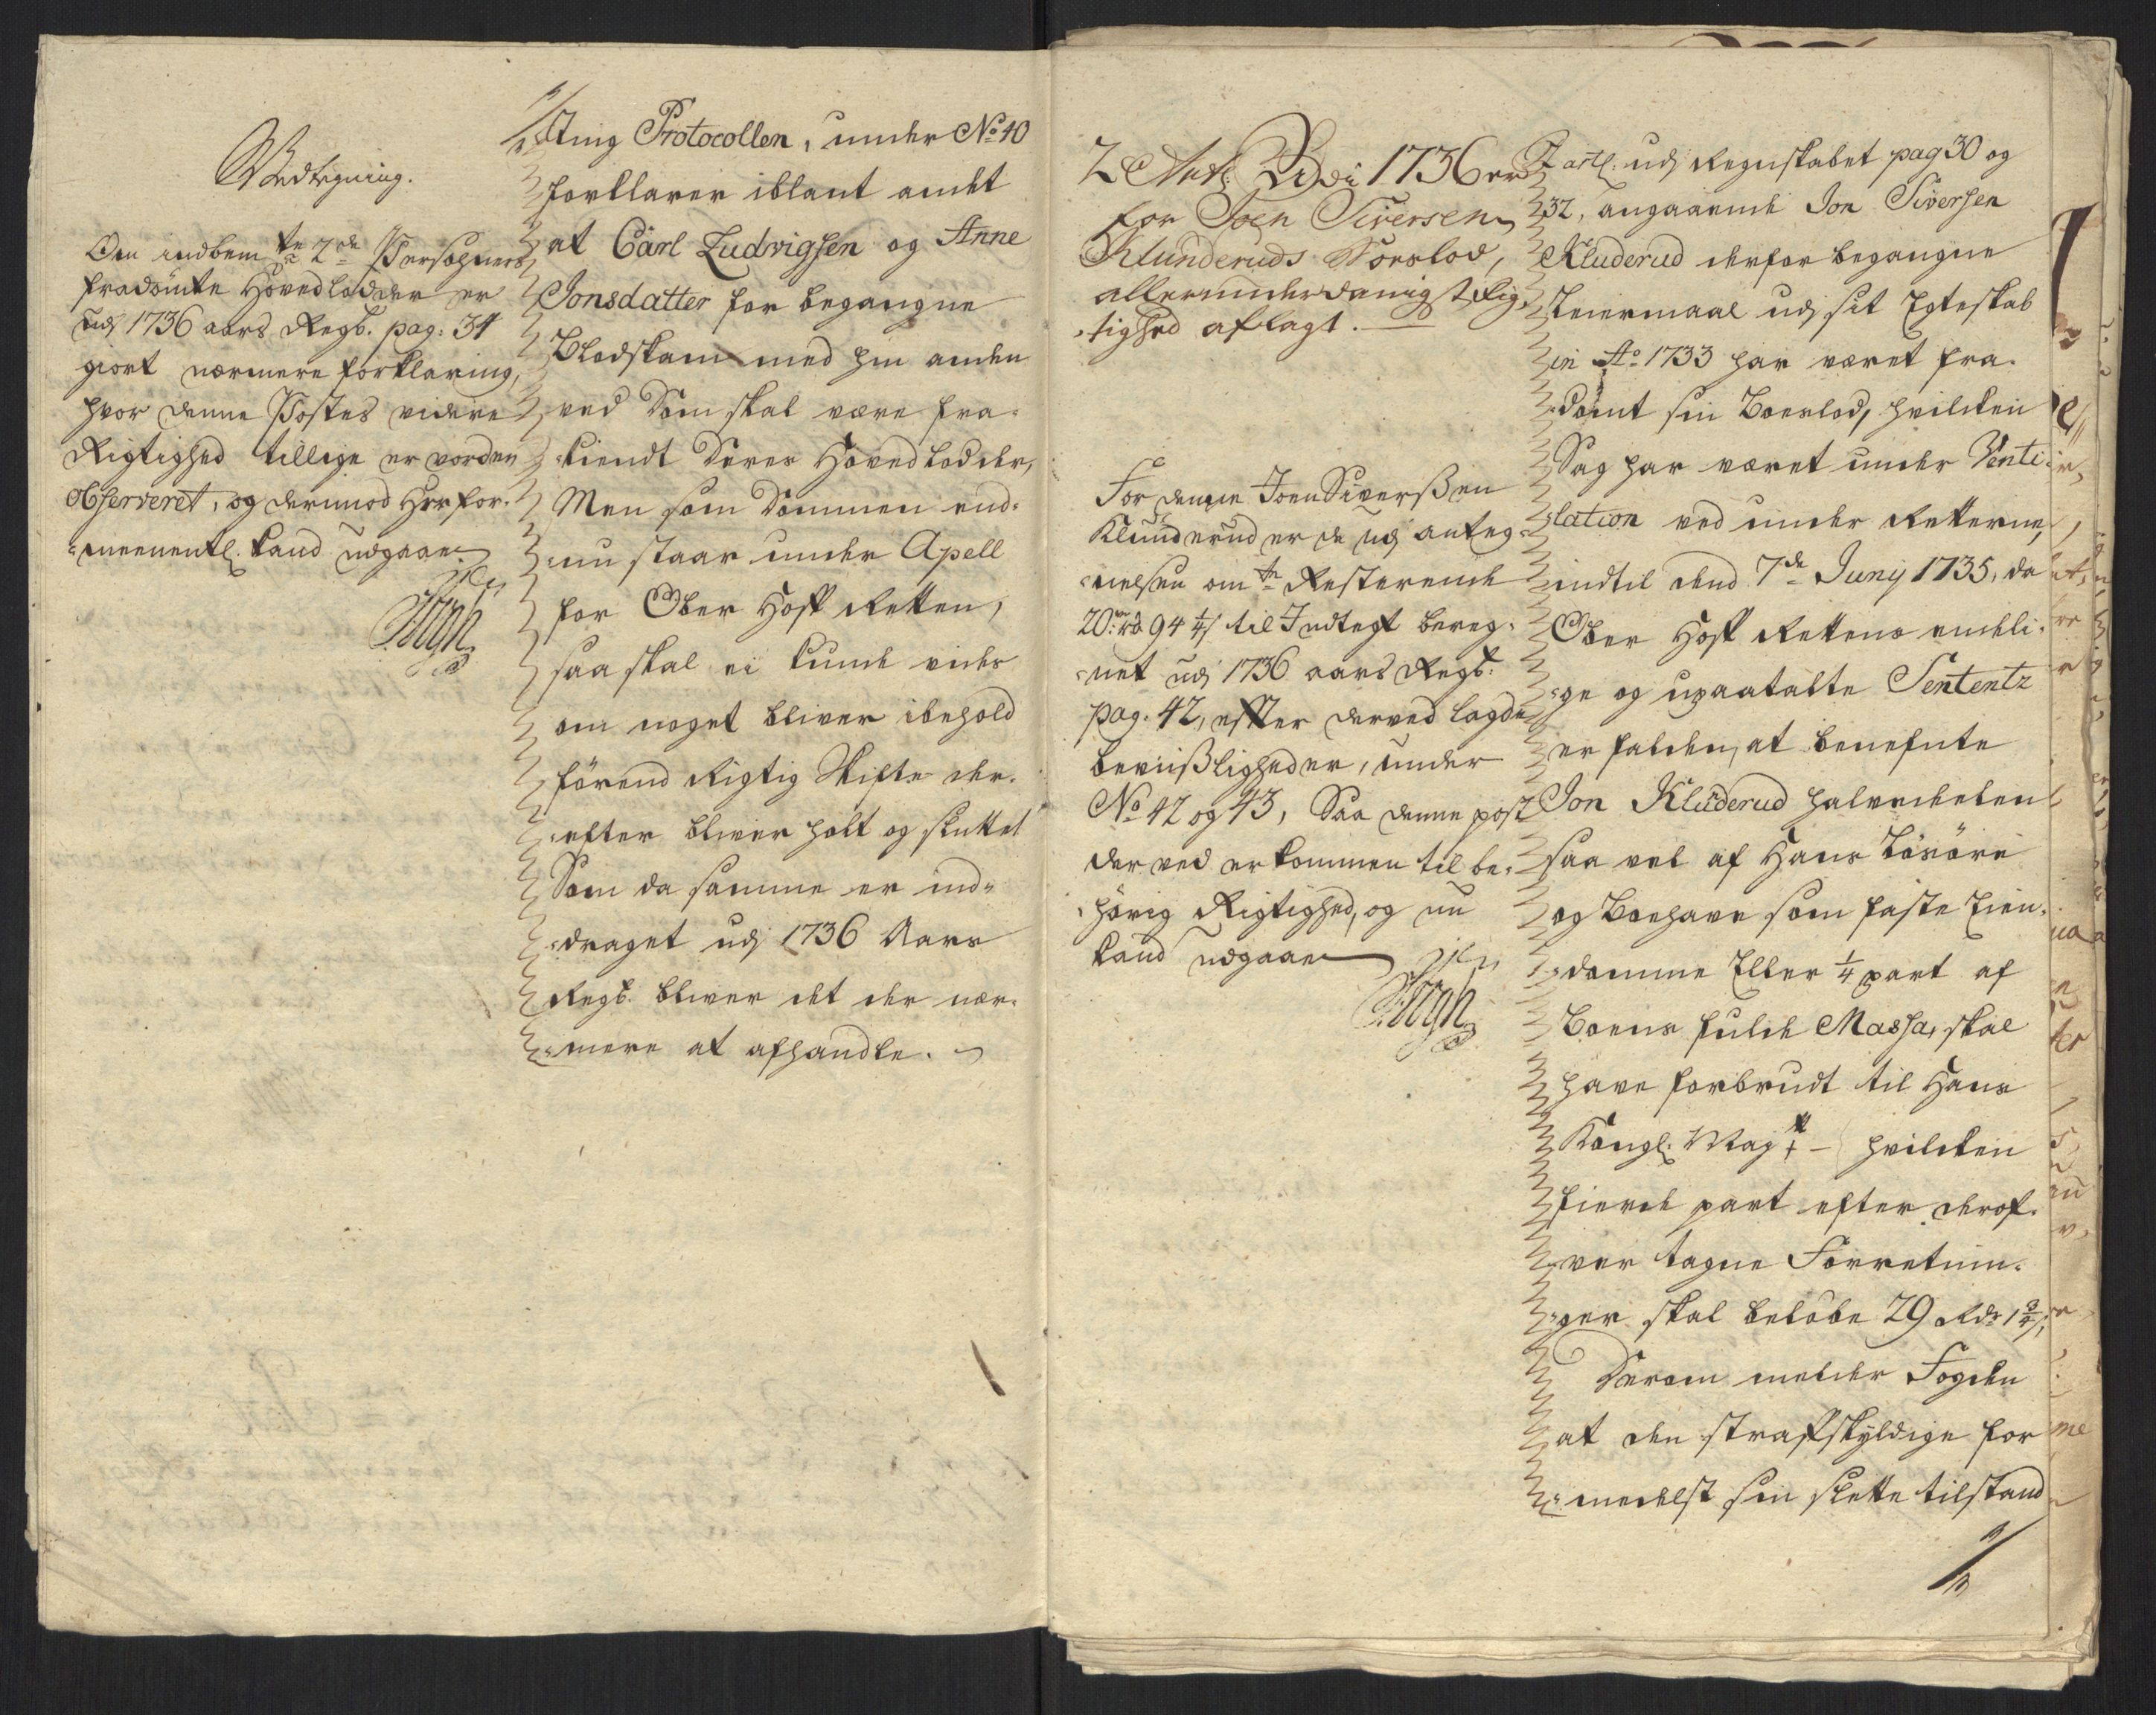 Vedtegning.
Om indbem.te 2de Persohners
fradömte Hovedlodder er
udj 1736 aars Regsk. pag: 34
giort nærmere forklaring,
hvor denne Postes videre
Rigtighed tillige er vorden
observeret, og dermod Her for-
=meenentl. kand udgaae
Ting Protocollen, under No 40
forklarer iblant andet
at Carl Ludvigsen og Anne
Jonsdatter for begangne
Blodskam med hin anden
ved Dom skal være fra-
=kiendt Deres Hovedlodder,
Men som Dommen end-
=nu staar under Apell
for Ober Hoff Retten,
saa skal ei kunde vides
om noget bliver ibehold
förend Rigtig Skifte der-
=efter bliver holt og sluttet
Som da samme er ind-
=draget udj 1736 Aars
Regsk. bliver det der nær-
=mere at afhandle.
2 Ants. Udi 1736 er
for Joen Siversen
Klunderuds Boeslod,
allerunderdanigst Rig-
=tighed aflagt.
For denne Joen Siverssen
Klunderud er de udj anteg-
=nelsen om te Resterende
20 rd 94 1/4 s til Indtegt bereg-
=net udj 1736 aars Regsk:
pag. 42, effter derved lagde
bevissligheder, under
No 42 og 43, Saa denne post
derved er kommen til be-
=hörig Rigtighed, og nu
kand udgaae
2 artl. udj Regnskabet pag 30 og
32, angaaende Jon Siversen
Kluderud derfor begangne
Leiermaal udj sit Egteskab
in Ao 1733 har været fra-
=dömt sin Boeslod, hvilcken
Sag har været under Venti-
lation ved under Retterne,
indtil dend 7de Junij 1735, da
Ober Hoff Rettens endeli-
=ge og upaatalte Sententz
er falden, at benefnte
Jon Kluderud halvedeelen
saa vel af Hans Lösöre
og Boehave som faste Eien-
=domme Eller 1/4 part af
Boens fulde Massa, skal
have forbrudt til Hans
Kongl. Mayt - hvilcken
fierde part efter derof-
=ver tagne Forretnin-
=ger skal belöbe 29 Rdr 1 3/4 s,
Derom melder Fogden
at den straffskyldige for
=medelst sin slette tilstand